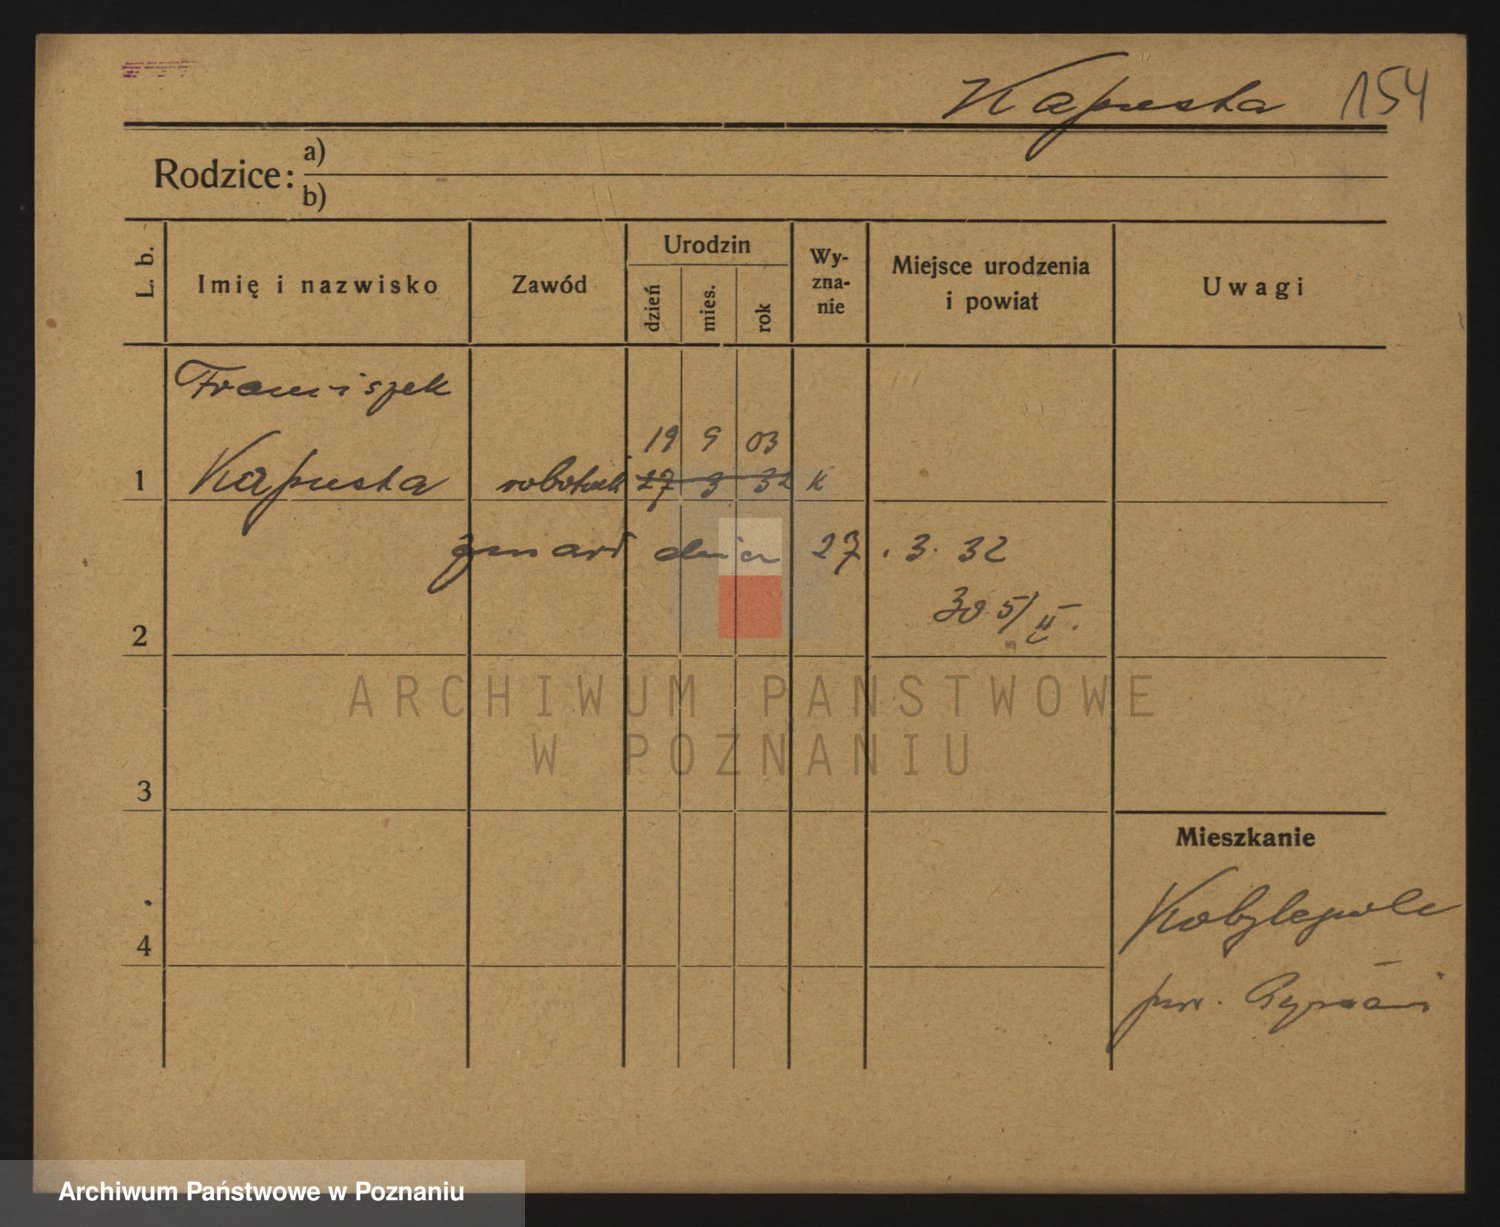 Kapusta 154
Rodzice: a)
b)
L. b. Imię i nazwisko Zawód Urodzin dzień mies. rok Wy-zna-nie Miejsce urodzenia i powiat Uwagi
Franciszek
19 9 03
1 Kapusta robotnik 27 3 32 K
zmarł dnia 27. 3. 32
305/II.
2
ARCHIWUM PAŃSTWOWE
W POZNANIU
3
Mieszkanie
Kobylepole
4
pow.
Archiwum Państwowe w Poznaniu